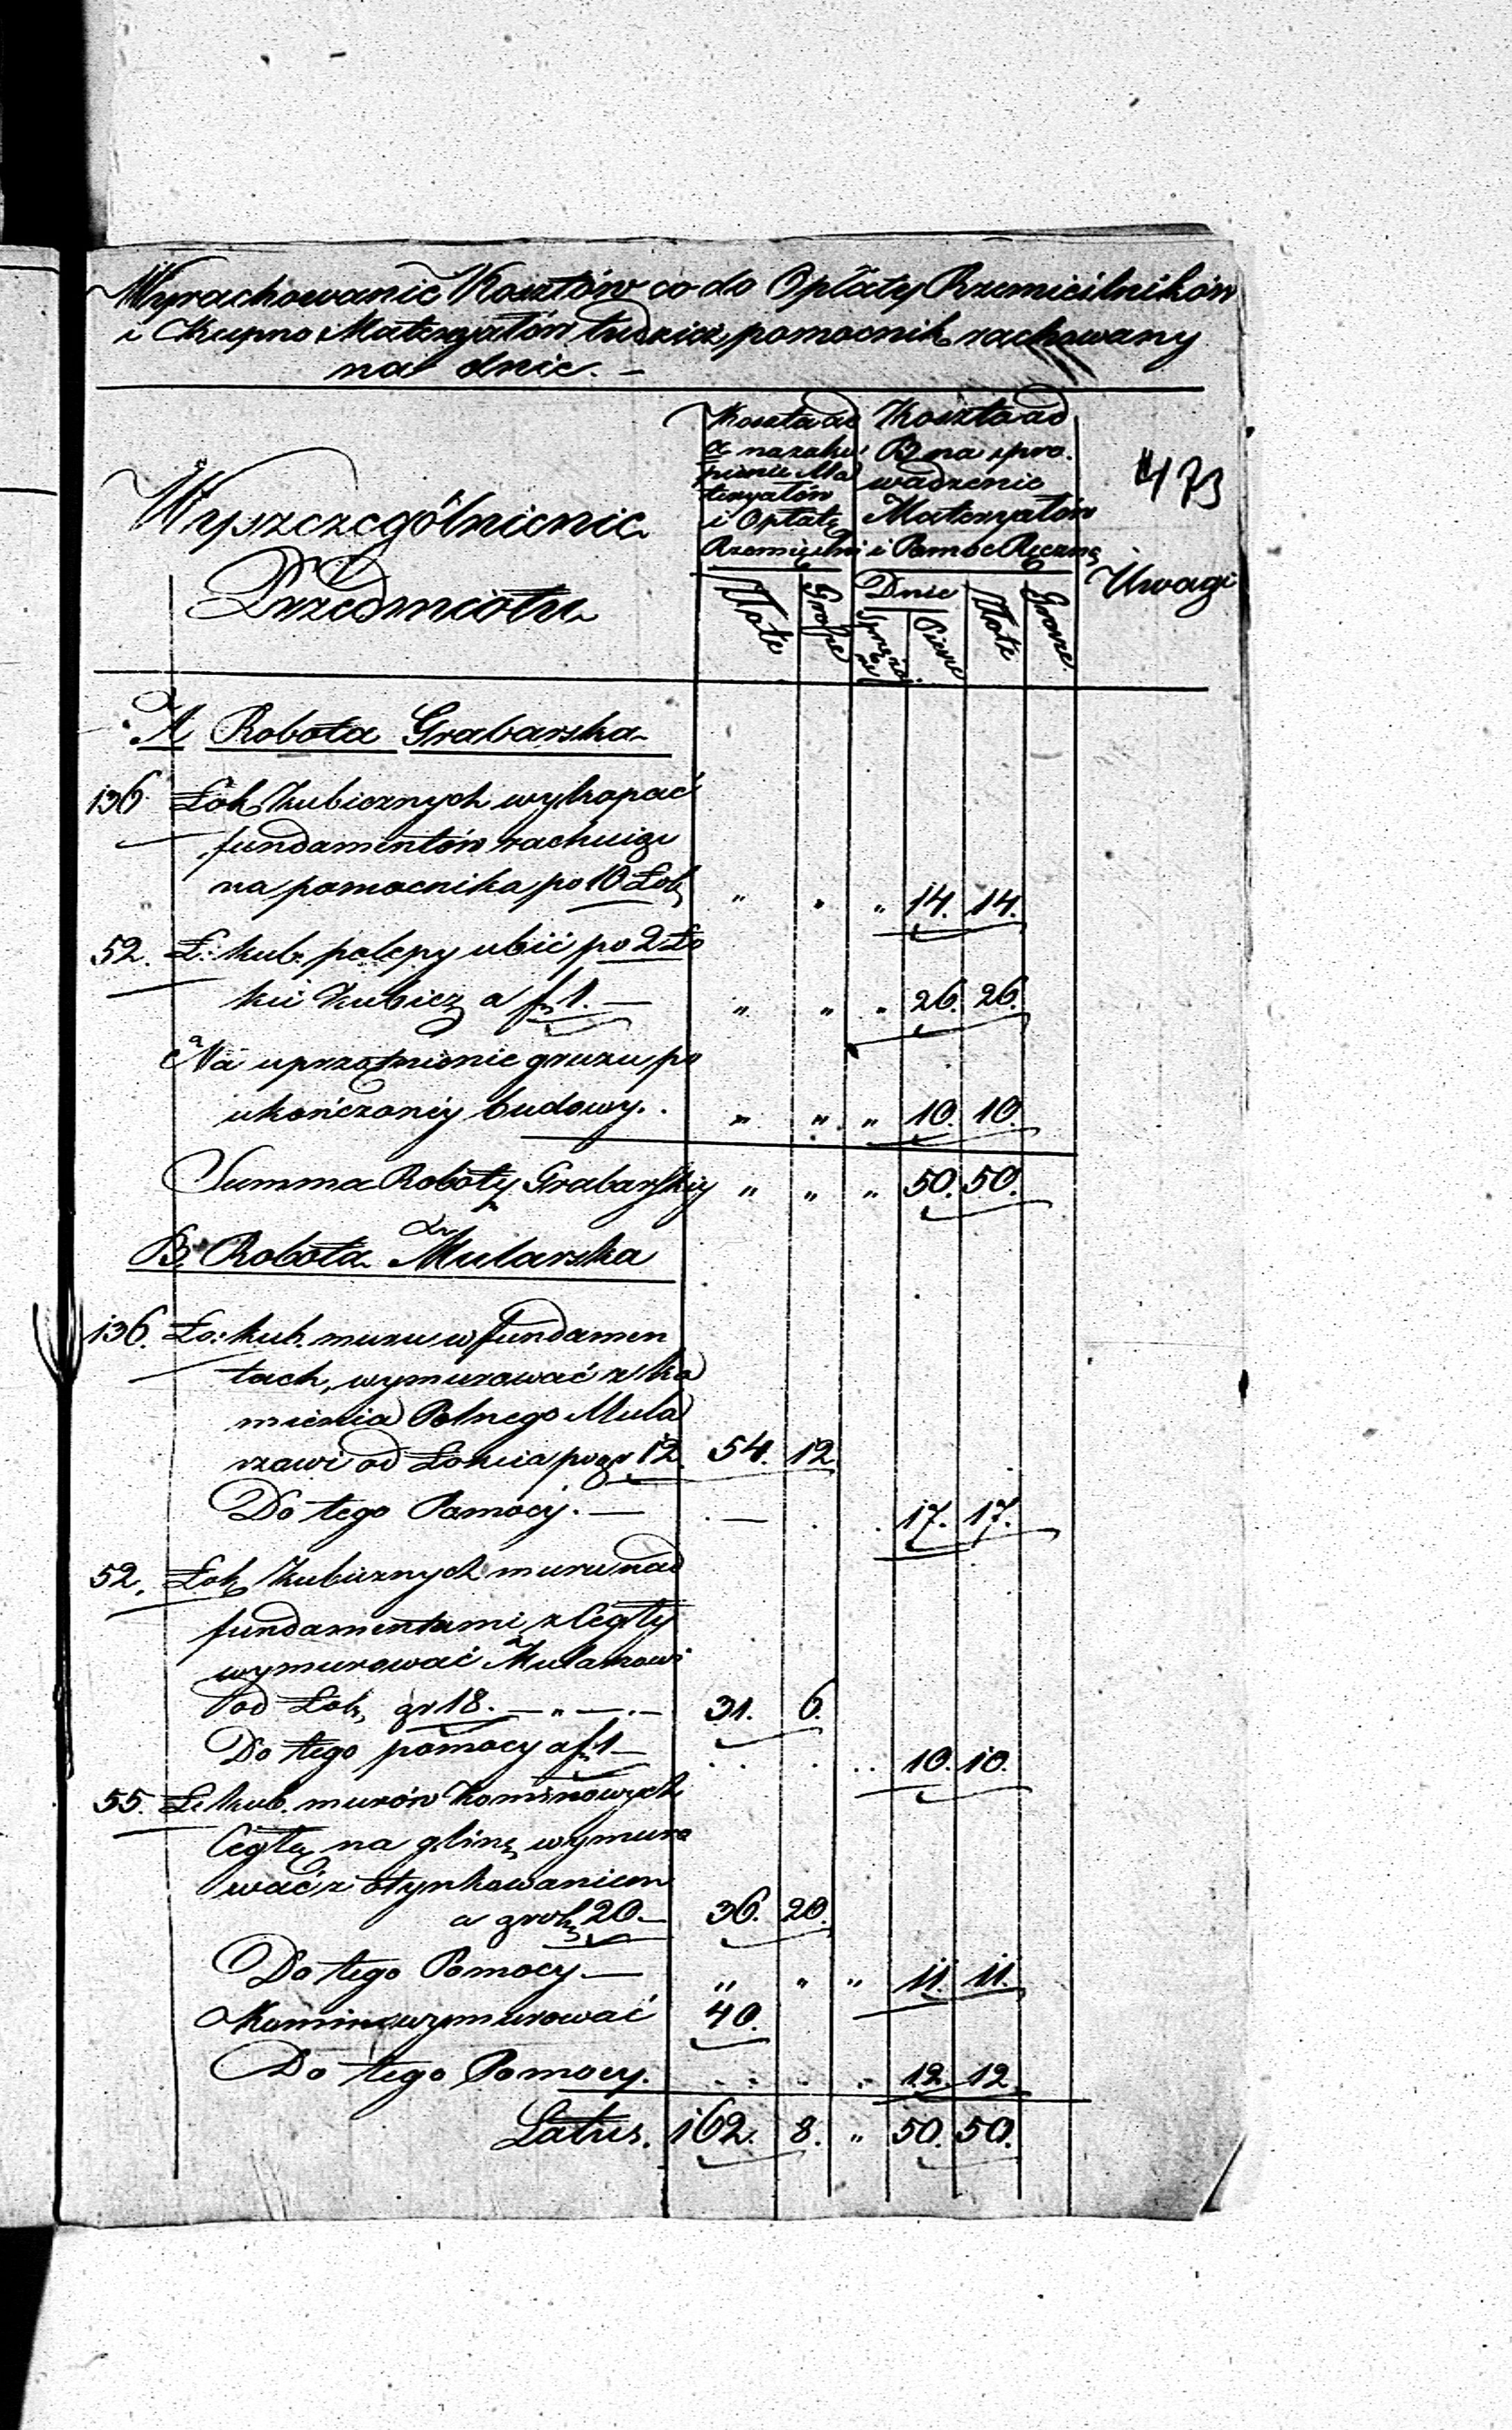 Wyrachowanie Kosztów co do Opłaty Rzemieślników
i Kupno Materyałów tudzież pomocnik rachowany
na dnie. –
Wyszczególnienie
Przedmiotu
Koszta ad
a na zaku
pienie Ma
teryałów
i Opłatę
Rzemieślni
Koszta ad
B na spro.
wadzenie
Materyałów
i Pomoc Ręczną
473
Uwagi
Złote Grosze Dnie Złote Grosze.
Piesze
A Robota Grabarska
136 Łok. Kubicznych wykopać
fundamentów rachuiąc
na pomocnika po 10 Łok. " " " 14. 14.
52. Ł: kub. polepy ubić po 2 Ło
kci Kubicz a f 1. — " " " 26. 26.
Na uprzątnienie gruzu po
ukończoney budowy. . " " " 10. 10.
Summa Roboty Grabarskiy " " " 50. 50.
B Robota Mularska
136. Ło: kub. muru w fundamen
tach, wymurować z ka
mienia Polnego Mula
rzowi od Łokcia po gr 12. 54. 12
Do tego Pomocy. — . — . . 17. 17.
52. Łok Kubicznych muru nad
fundamentami z Cegły
wymurować Mularzowi
od Łok. gr 18. — " — . — 31. 6.
Do tego pomocy a f 1 — . . . .. 10. 10.
55. Ł: kub. murów Kominowych
Cegłą na glinę wymuro
wać z otynkowaniem
a grosz 20. — 36. 20.
Do tego Pomocy — " " " 11. 11.
Komin wymurować 40.
Do tego Pomocy. . . . . 12. 12
Latus. 162. 8. " 50. 50.